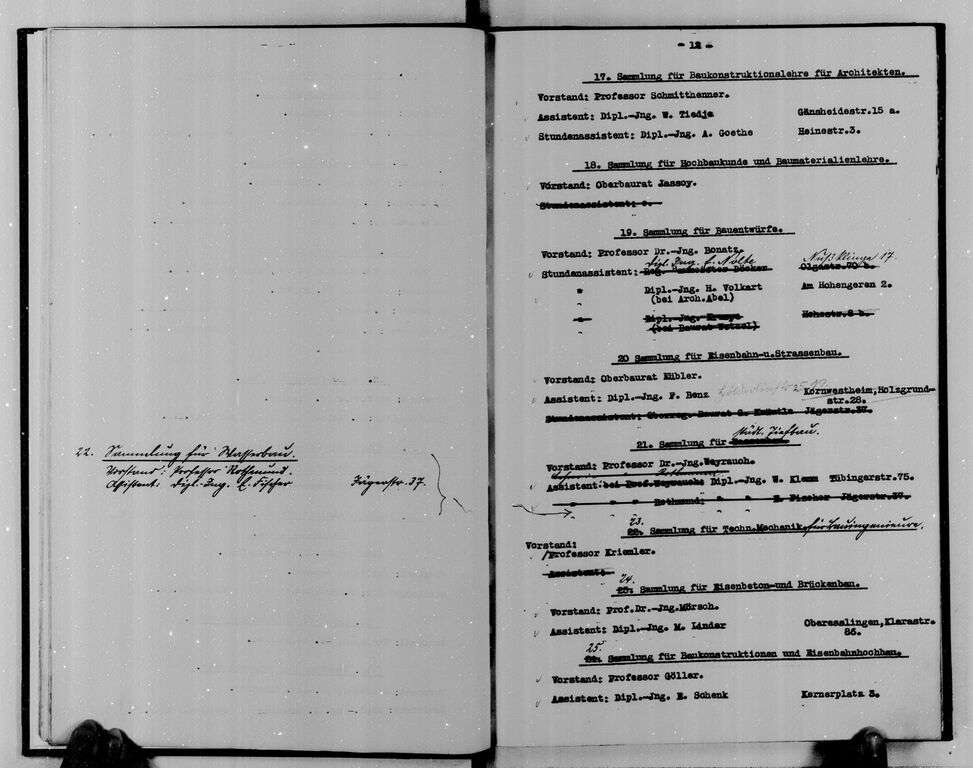 22. Sammlung für Wasserbau.
Vorstand: Professor Rothmund.
Assistent: Dipl.-Ing. E. Fischer Jägerstr. 37
- 12 -
17. Sammlung für Baukonstruktionslehre für Architekten.
Vorstand: Professor Schmitthenner.
Assistent: Dipl.-Jng. W. Tiedje Gänsheidestr.15 a.
Stundenassistent: Dipl.-Jng. A. Goethe Heinestr.3.
18. Sammlung für Hochbaukunde und Baumaterialienlehre.
Vorstand: Oberbaurat Jassoy.
Stundenassistent: c.
19. Sammlung für Bauentwürfe.
Vorstand: Professor Dr.-Jng. Bonatz.
dipl. Ing. E. Nolte Nußklinge 17.
Stundenassistent: Reg. Baumeister Döcker Olgastr.70 b.
" Dipl.-Jng. H. Volkart Am Hohengeren 2.
(bei Arch.Abel)
" Dipl.-Jng. Hohestr.8 b.
(bei Baurat Wetzel)
20 Sammlung für Eisenbahn-u.Strassenbau.
Vorstand: Oberbaurat Kübler.
Assistent: Dipl.-Jng. P. Benz Kornwestheim,Holzgrund-
str.28.
Stundenassistent: Oberreg. Baurat G. Jägerstr.37.
städt. Tiefbau.
21. Sammlung für
Vorstand: Professor Dr.-Jng.Weyrauch.
Assistent: bei Prof.Weyrauch: Dipl.-Jng. W. Klemm Tübingerstr.75.
" " Rothmund: " " E. Fischer Jägerstr.37.
23.
22. Sammlung für Techn.Mechanik für Bauingenieure.
Vorstand:
Professor Kriemler.
Assistent:
24.
23. Sammlung für Eisenbeton-und Brückenbau.
Vorstand: Prof.Dr.-Jng.Mörsch.
Assistent: Dipl.-Jng. M. Linder Oberesslingen,Klarastr.
86.
25.
24. Sammlung für Baukonstruktionen und Eisenbahnhochbau.
Vorstand: Professor Göller.
Assistent: Dipl.-Jng. R. Schenk Kernerplatz 3.